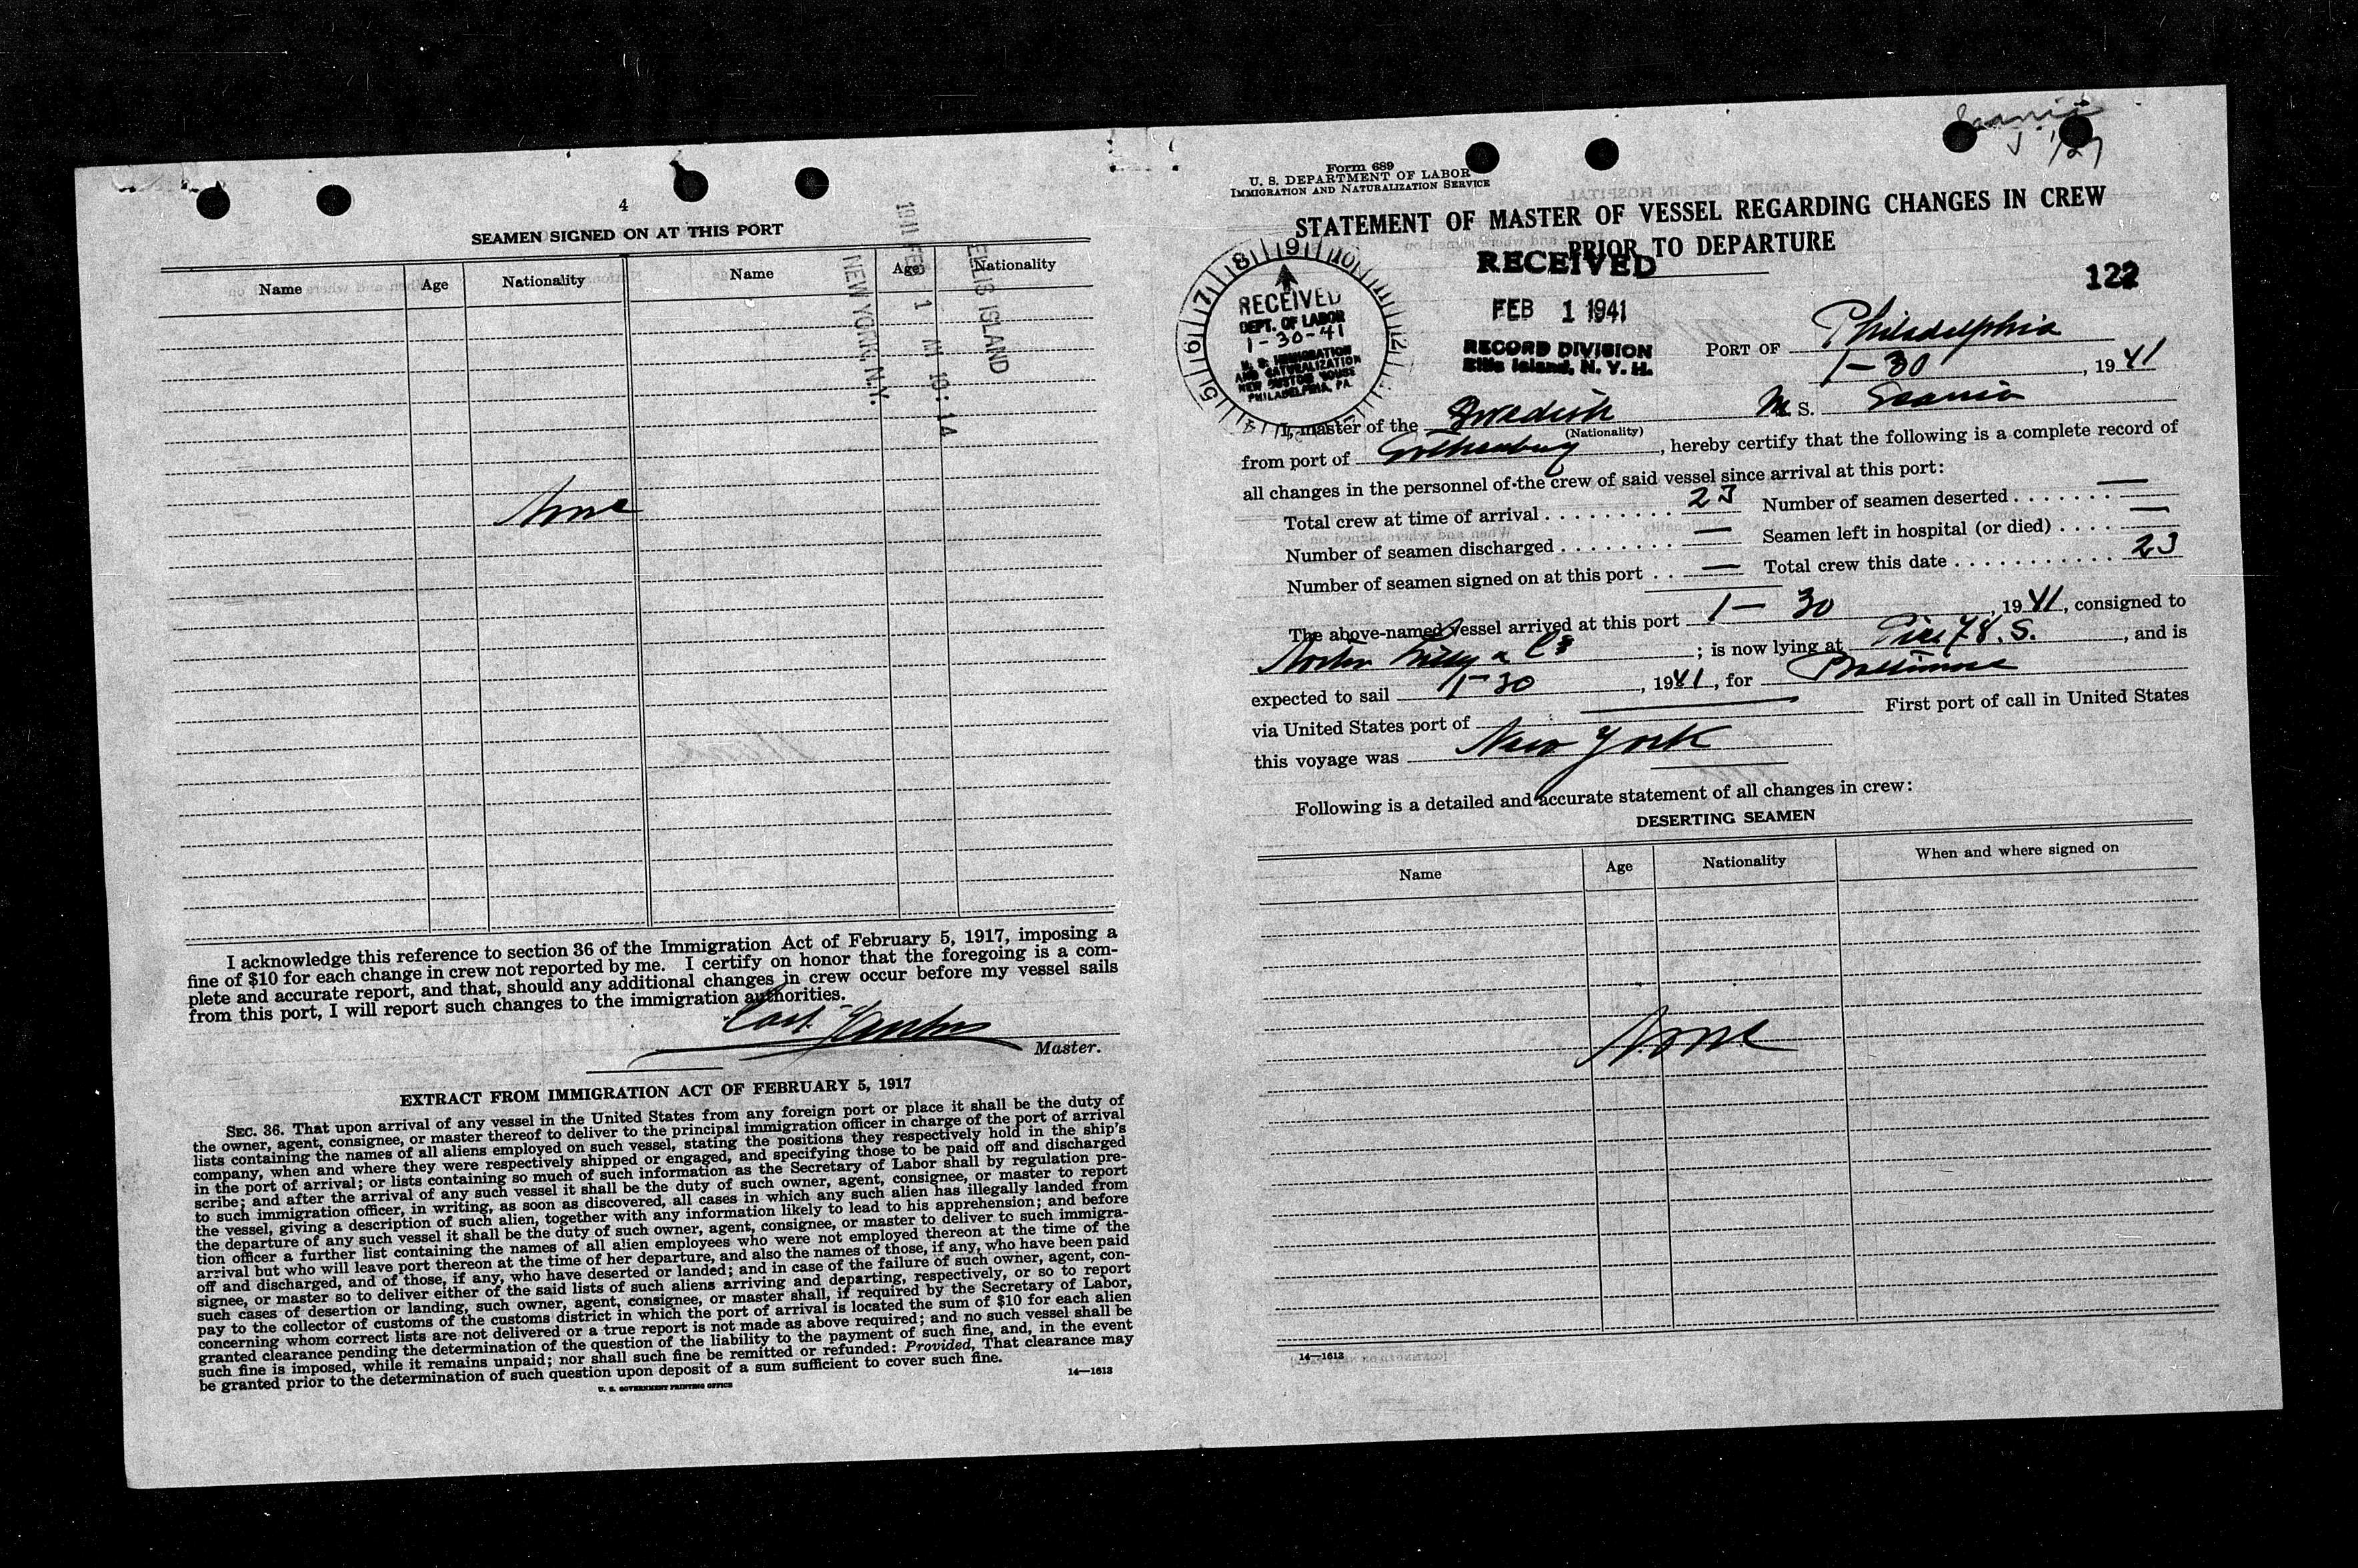 4
SEAMEN SIGNED ON AT THIS PORT
Name Age Nationality Name Age Nationality
ELLIS ISLAND
1941 FEB 1
NEW YORK, N.Y.
None
I acknowledge this reference to section 36 of the Immigration Act of February 5, 1917, imposing a
fine of $10 for each change in crew not reported by me. I certify on honor that the foregoing is a com-
plete and accurate report, and that, should any additional changes in crew occur before my vessel sails
from this port, I will report such changes to the immigration authorities.
Master.
EXTRACT FROM IMMIGRATION ACT OF FEBRUARY 5, 1917
SEC. 36. That upon arrival of any vessel in the United States from any foreign port or place it shall be the duty of
the owner, agent, consignee, or master thereof to deliver to the principal immigration officer in charge of the port of arrival
lists containing the names of all aliens employed on such vessel, stating the positions they respectively hold in the ship's
company, when and where they were respectively shipped or engaged, and specifying those to be paid off and discharged
in the port of arrival; or lists containing so much of such information as the Secretary of Labor shall by regulation pre-
scribe; and after the arrival of any such vessel it shall be the duty of such owner, agent, consignee, or master to report
to such immigration officer, in writing, as soon as discovered, all cases in which any such alien has illegally landed from
the vessel, giving a description of such alien, together with any information likely to lead to his apprehension; and before
the departure of any such vessel it shall be the duty of such owner, agent, consignee, or master to deliver to such immigra-
tion officer a further list containing the names of all alien employees who were not employed thereon at the time of the
arrival but who will leave port thereon at the time of her departure, and also the names of those, if any, who have been paid
off and discharged, and of those, if any, who have deserted or landed; and in case of the failure of such owner, agent, con-
signee, or master so to deliver either of the said lists of such aliens arriving and departing, respectively, or so to report
such cases of desertion or landing, such owner, agent, consignee, or master shall, if required by the Secretary of Labor,
pay to the collector of customs of the customs district in which the port of arrival is located the sum of $10 for each alien
concerning whom correct lists are not delivered or a true report is not made as above required; and no such vessel shall be
granted clearance pending the determination of the question of the liability to the payment of such fine, and, in the event
such fine is imposed, while it remains unpaid; nor shall such fine be remitted or refunded: Provided, That clearance may
be granted prior to the determination of such question upon deposit of a sum sufficient to cover such fine.
U. S. GOVERNMENT PRINTING OFFICE
14—1613
Scania
Form 689
U. S. DEPARTMENT OF LABOR
IMMIGRATION AND NATURALIZATION SERVICE
STATEMENT OF MASTER OF VESSEL REGARDING CHANGES IN CREW
PRIOR TO DEPARTURE
122
5 6 7 8 9 10 11 12
RECEIVED
DEPT. OF LABOR
1-30-41
U. S. IMMIGRATION
AND NATURALIZATION
NEW CUSTOM HOUSE
PHILADELPHIA, PA.
RECEIVED
FEB 1 1941
RECORD DIVISION
Ellis Island, N. Y. H.
PORT OF Philadelphia
1-30, 1941
I, master of the Swedish M S. Scania
(Nationality)
from port of Gothenburg, hereby certify that the following is a complete record of
all changes in the personnel of the crew of said vessel since arrival at this port:
Total crew at time of arrival . . . . . . . . . 23 Number of seamen deserted . . . . . . . —
Number of seamen discharged . . . . . . . . — Seamen left in hospital (or died) . . . . —
Number of seamen signed on at this port . . — Total crew this date . . . . . . . . . . . . 23
The above-named vessel arrived at this port 1-30, 1941, consigned to
Norton Lilly & Co; is now lying at Pier 78. S., and is
expected to sail 1-30, 1941, for Baltimore
via United States port of — First port of call in United States
this voyage was New York
Following is a detailed and accurate statement of all changes in crew:
DESERTING SEAMEN
Name Age Nationality When and where signed on
None
14—1613